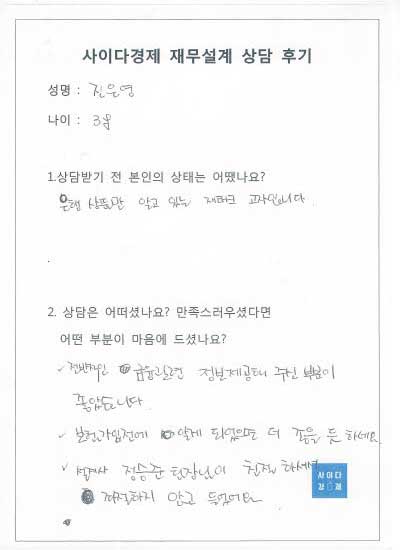 사이다경제 재무설계 상담 후기
성명 : 진은영
나이 : 38
1.상담받기 전 본인의 상태는 어땠나요?
은행 상품만 알고 있는 재테크 고자입니다.
2. 상담은 어떠셨나요? 만족스러우셨다면
어떤 부분이 마음에 드셨나요?
✓ 전반적인 금융관련 정보제공해 주신 부분이
좋았습니다.
✓ 보험가입전에 알게 되었으면 더 좋을 듯 하네요
✓ 설계사 정승준 팀장님이 친절하세여
지적하지 않고 들었어요
사이다
경제